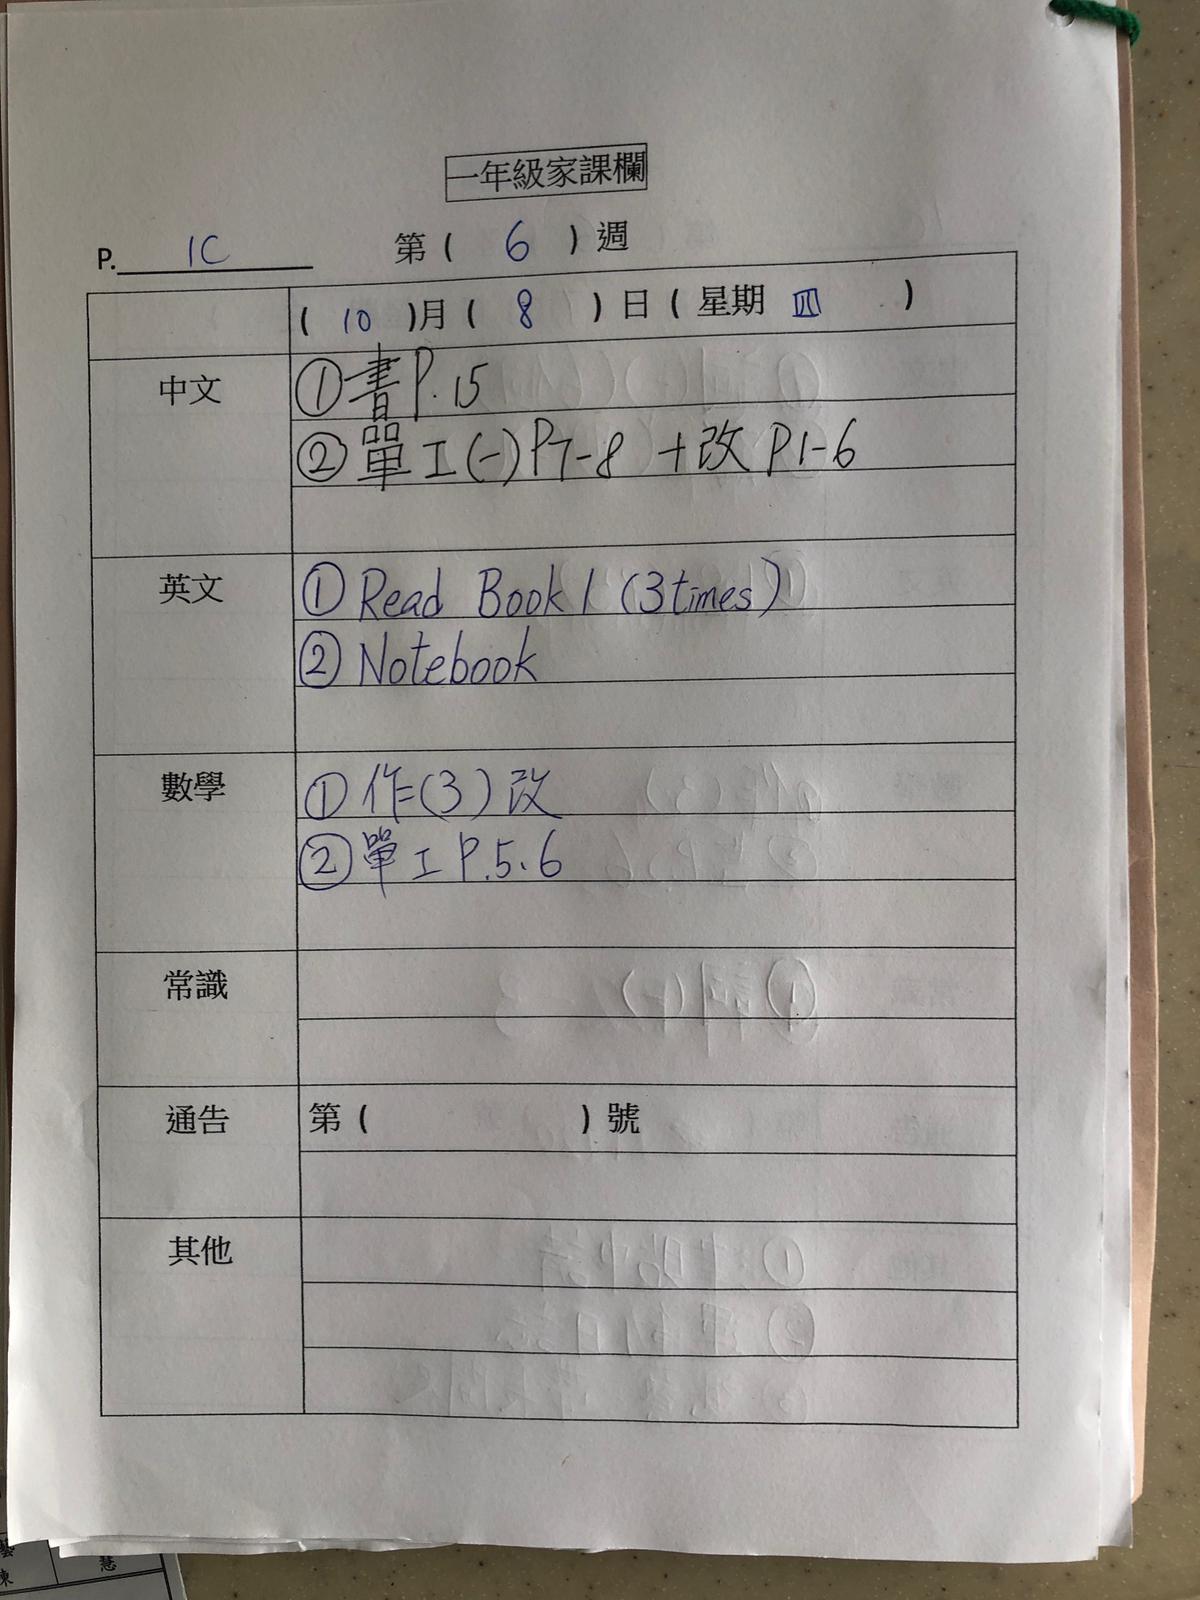 一年級家課欄
P. 1C 第( 6 )週
( 10 )月( 8 )日(星期 四 )
中文 ①書P.15
②單工(一)P7-8 +改P1-6
英文 ①Read Book 1 (3times)
②Notebook
數學 ①作(3)改
②單工P.5、6
常識
通告 第( )號
其他
慧